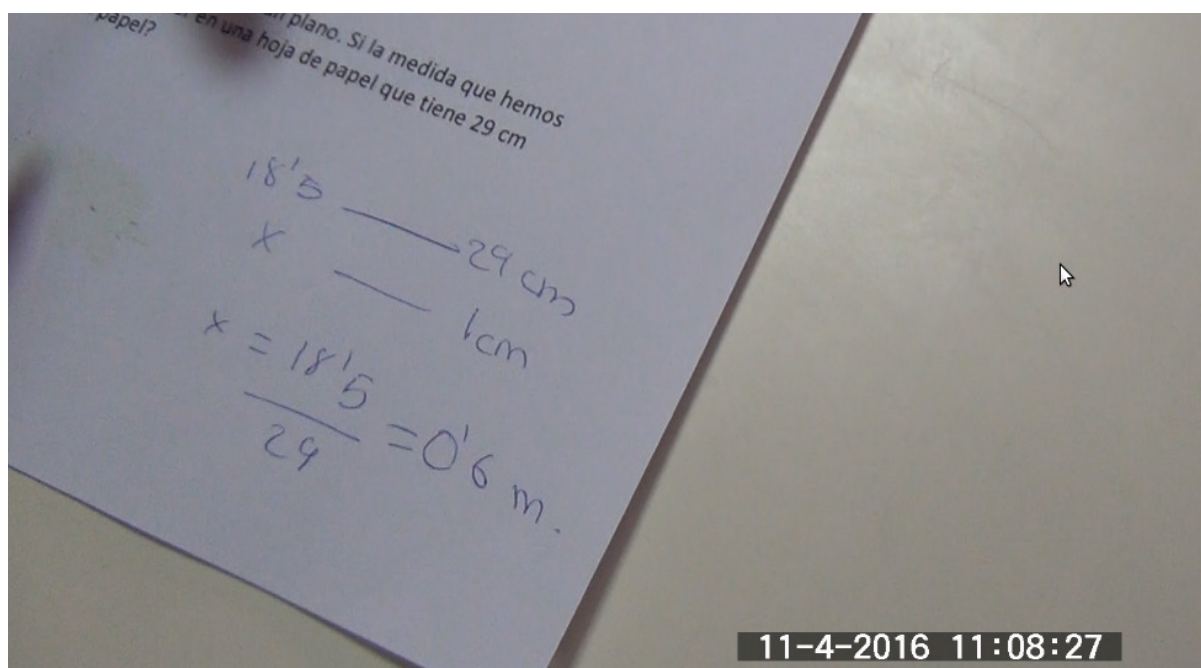 un plano. Si la medida que hemos
en una hoja de papel que tiene 29 cm
papel?
18'5 — 29 cm
x — 1cm
x = 18'5
29
= 0'6 m.
11-4-2016 11:08:27